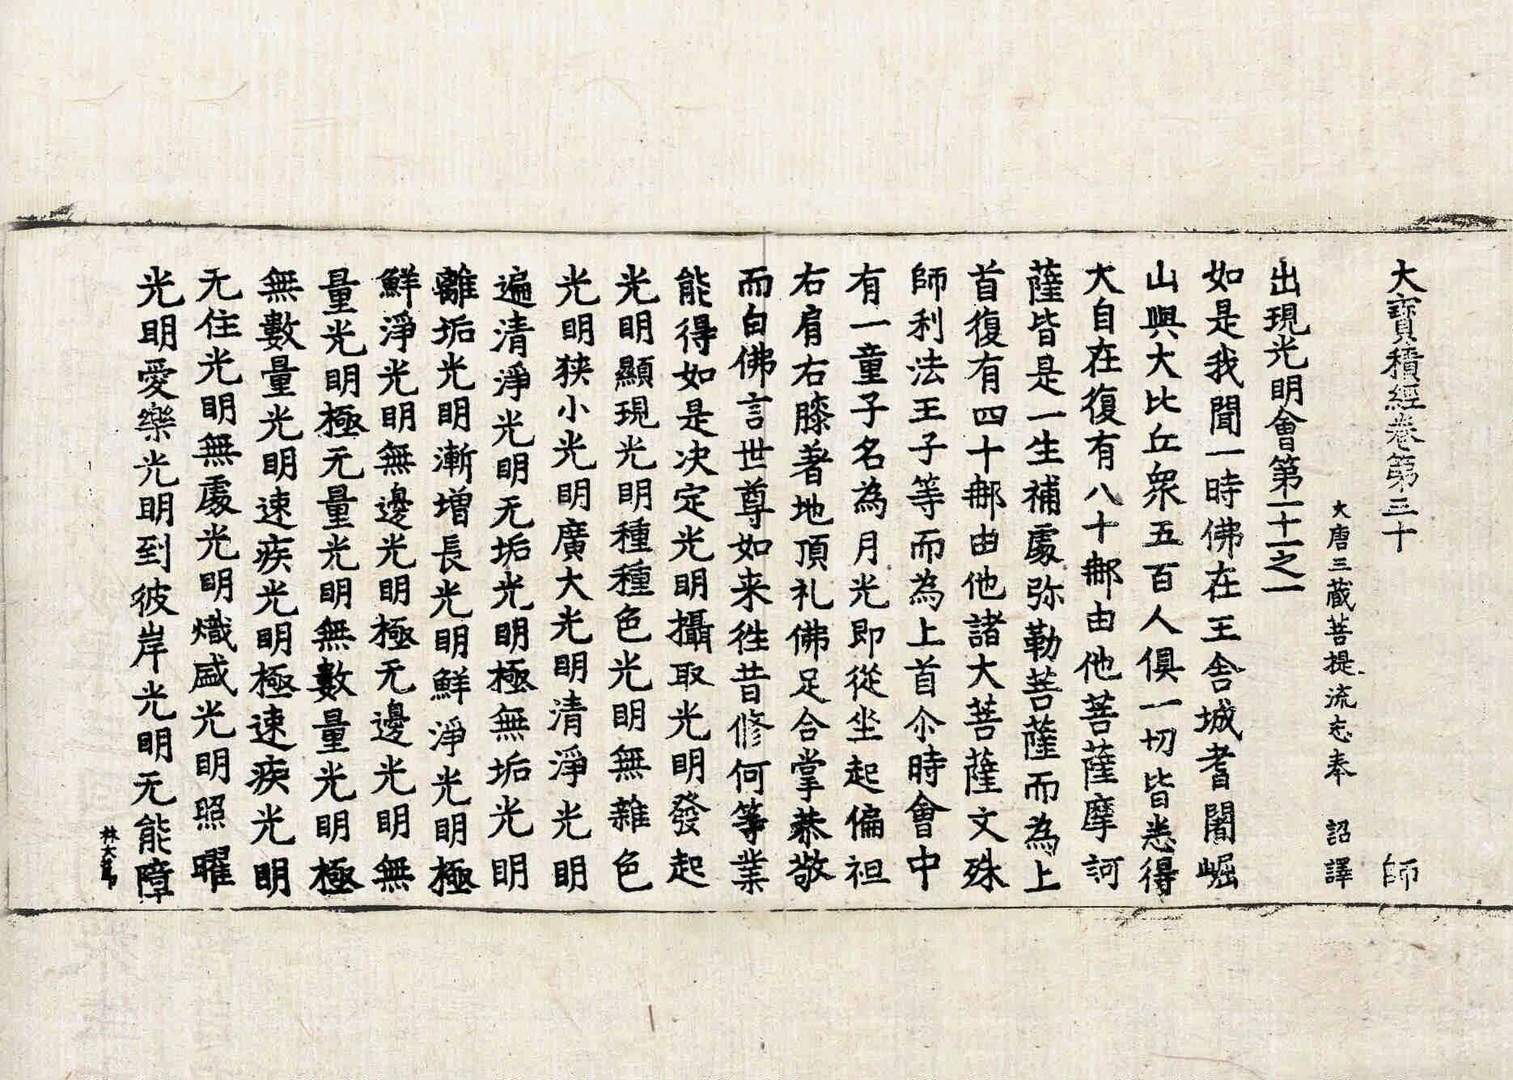 大寶積經卷第三十 師
大唐三藏菩提流志奉 詔譯
出現光明會第十一之一
如是我聞一時佛在王舍城耆闍崛
山與大比丘衆五百人俱一切皆悉得
大自在復有八十𨚗由他菩薩摩訶
薩皆是一生補處弥勒菩薩而為上
首復有四十𨚗由他諸大菩薩文殊
師利法王子等而為上首尒時會中
有一童子名為月光即從坐起偏袒
右肩右膝著地頂礼佛足合掌恭敬
而白佛言世尊如来徃昔修何等業
能得如是決定光明攝取光明發起
光明顯現光明種種色光明無雜色
光明狹小光明廣大光明清淨光明
遍清淨光明无垢光明極無垢光明
離垢光明漸增長光明鮮淨光明極
鮮淨光明無邊光明極无邊光明無
量光明極无量光明無數量光明極
無數量光明速疾光明極速疾光明
无住光明無處光明熾盛光明照曜
光明愛樂光明到彼岸光明无能障